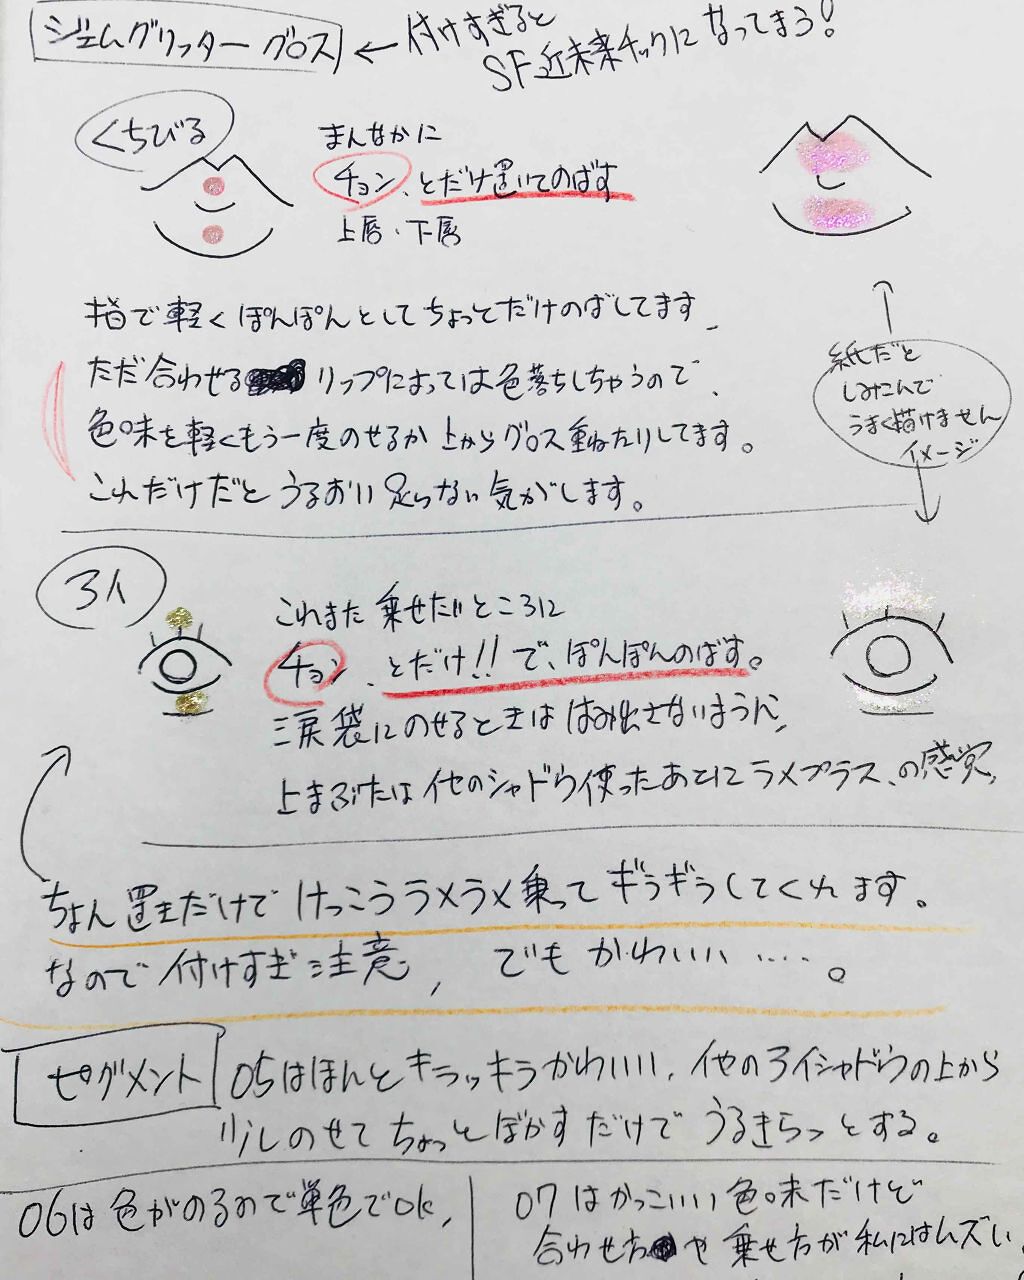 ジェムグリッターグロス ← 付けすぎると
SF近未来チックになってまう!
くちびる
まんなかに
チョン、とだけ置いてのばす
上唇・下唇
指で軽くぽんぽんとしてちょっとだけのばしてます、
ただ合わせる リップによっては色落ちしちゃうので、
色味を軽くもう一度のせるか上からグロス重ねたりしてます。
これだけだとうるおい足らない気がします。
紙だと
しみこんで
うまく描けません
イメージ
アイ
これまた乗せたいところに
チョン、とだけ!!で、ぽんぽんのばす。
涙袋にのせるときははみ出さないように、
上まぶたは他のシャドウ使ったあとにラメプラス、の感覚、
ちょん置きだけでけっこうラメラメ乗ってギラギラしてくれます。
なので付けすぎ注意、でもかわいい……。
ピグメント 05はほんとキラッキラかわいい、他のアイシャドウの上から
少しのせてちょっとぼかすだけでうるきらっとする。
06は色がのるので単色でOK、
07はかっこいい色味だけど
合わせ方や乗せ方が私にはムズい、